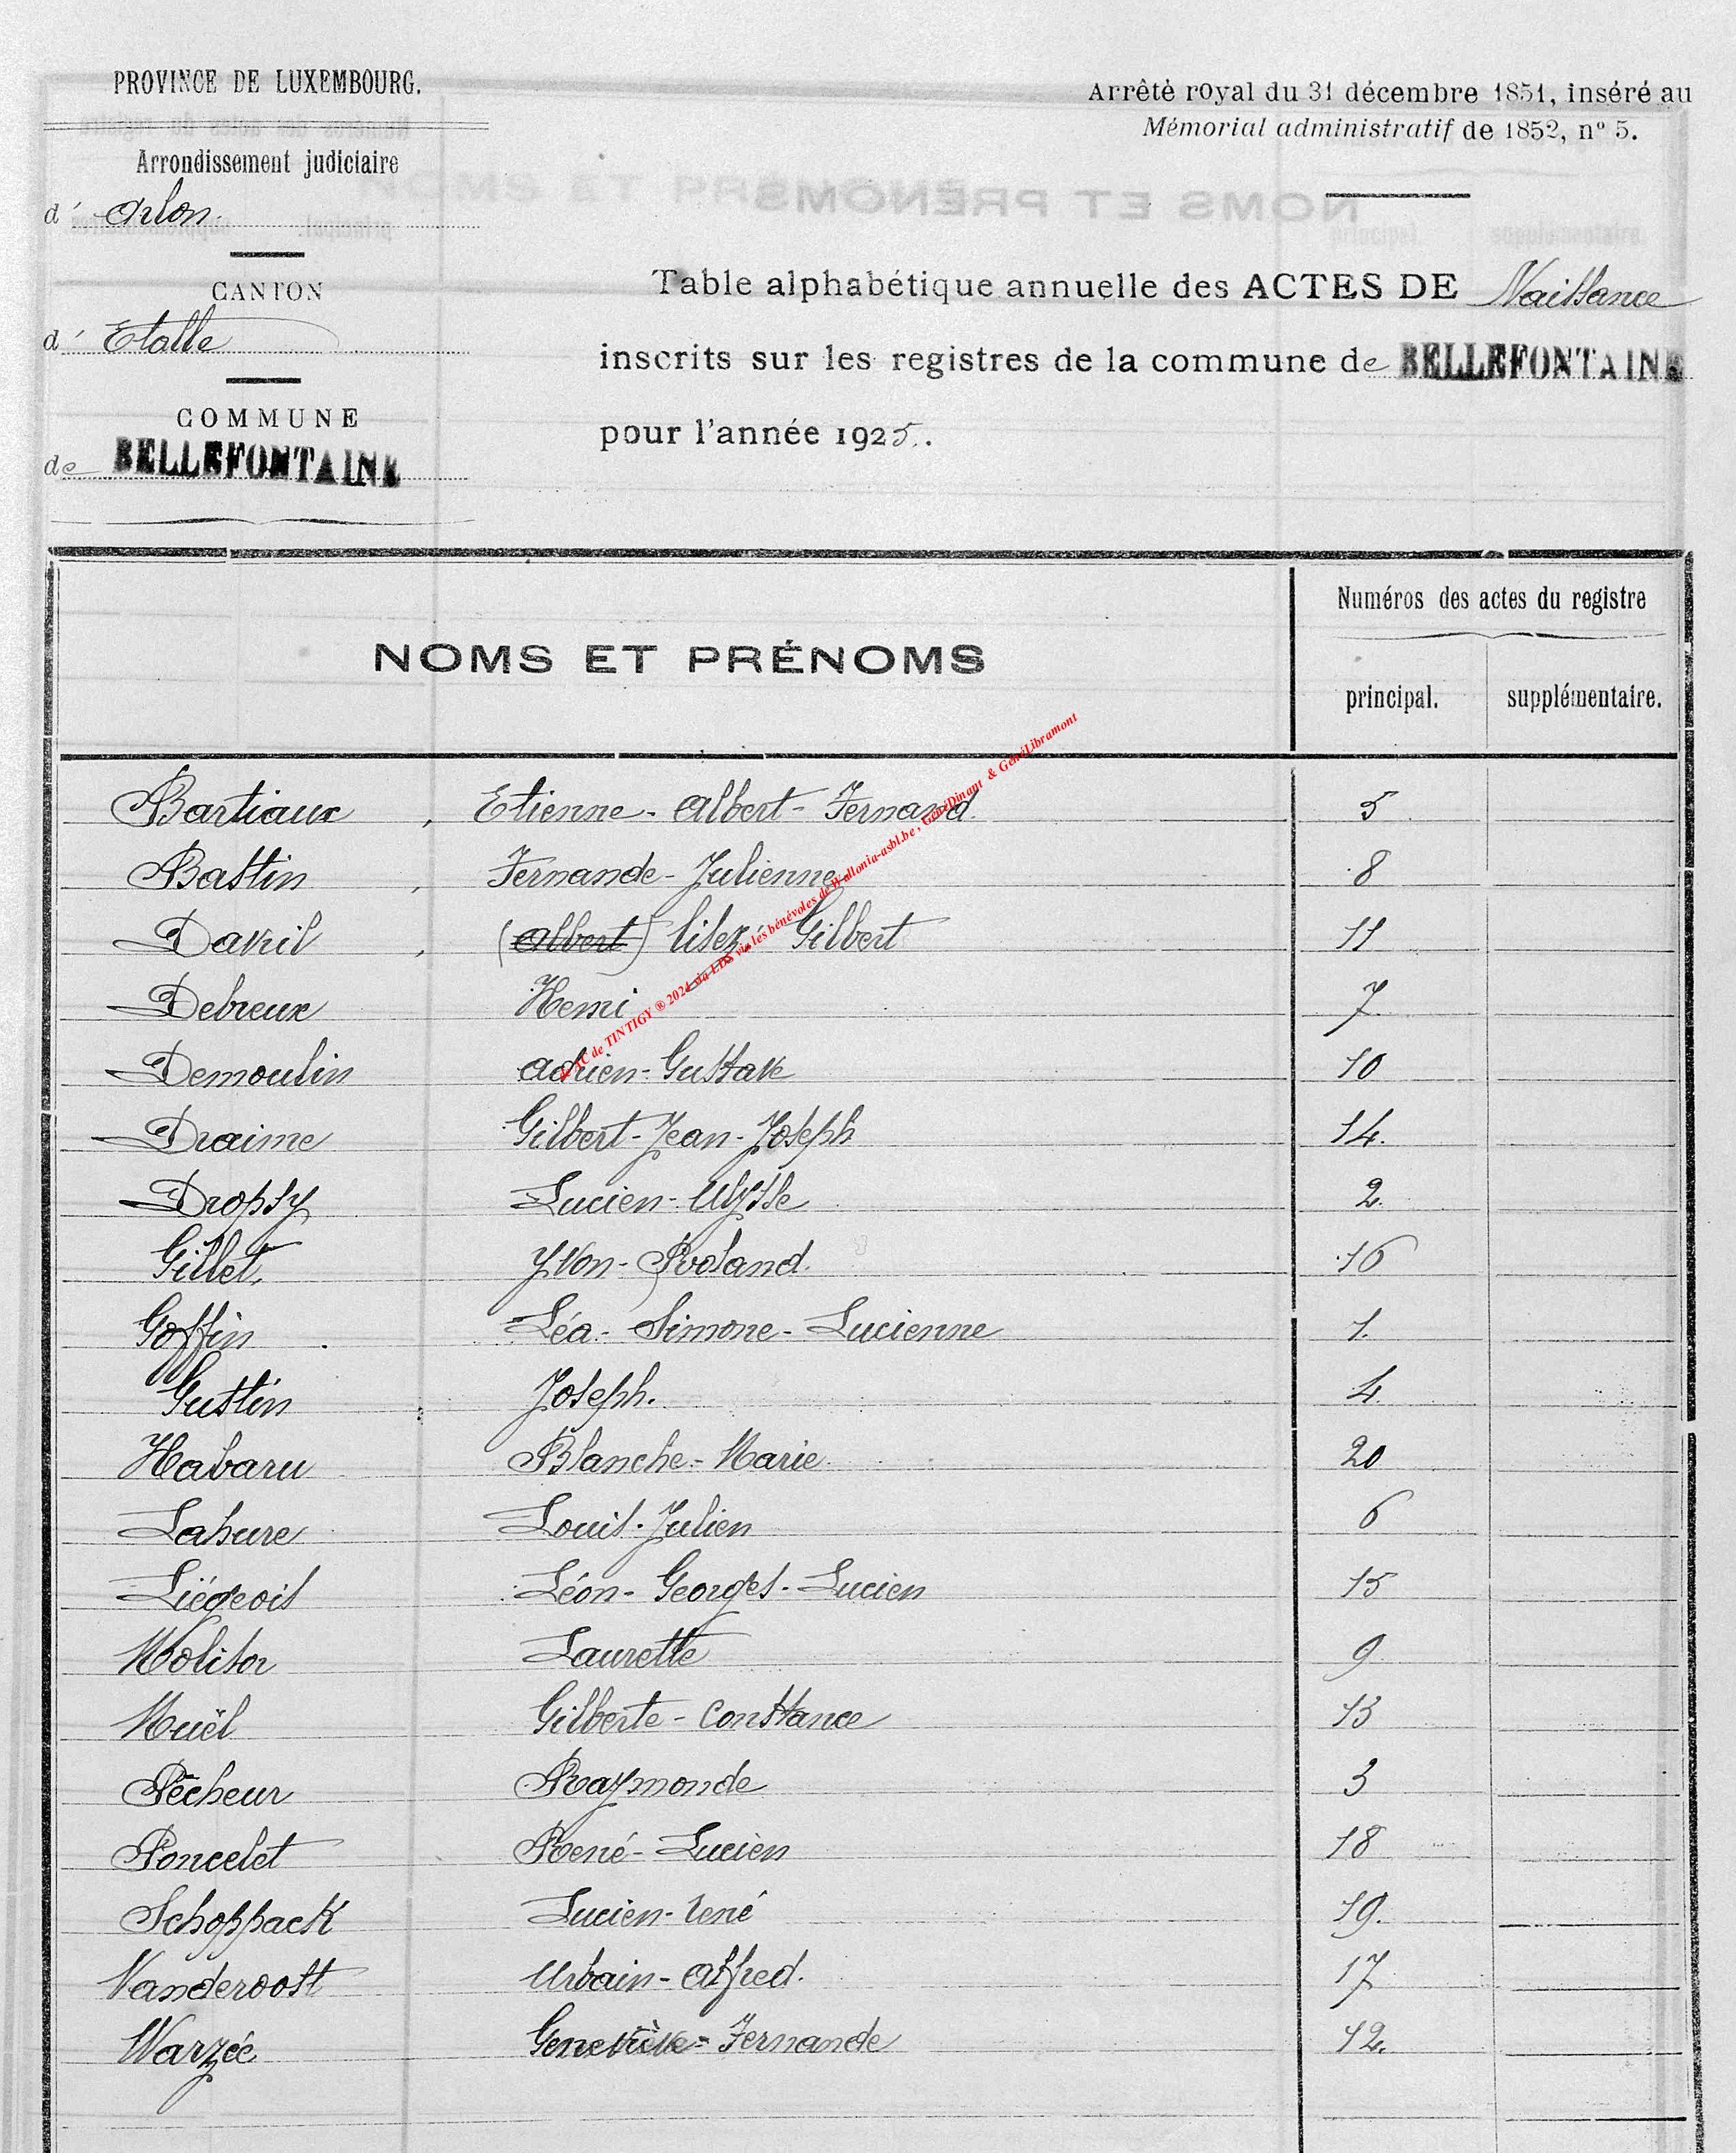 PROVINCE DE LUXEMBOURG.
Arrondissement judiciaire
d' Arlon.
CANTON
d' Etalle
COMMUNE
de BELLEFONTAINE
Arrêté royal du 31 décembre 1851, inséré au
Mémorial administratif de 1852, nº 5.
Table alphabétique annuelle des ACTES DE Naissance
inscrits sur les registres de la commune de BELLEFONTAINE
pour l'année 1925.
NOMS ET PRÉNOMS
Numéros des actes du registre
principal. supplémentaire.
Bartiaux, Etienne - Albert - Fernand. 5
Bastin, Fernande - Julienne 8
Davril, (Albert) lisez: Gilbert 11
Debreux Henri 7.
Demoulin Adrien - Gustave 10
Draime Gilbert - Jean - Joseph 14.
Dropsy Lucien - Ulysse 2.
Gillet. Yvon - Roland. 16
Goffin Léa - Simone - Lucienne 1.
Gustin Joseph. 4.
Habaru Blanche - Marie. 20
Lahure Louis - Julien 6
Liégeois Léon - Georges - Lucien 15
Molitor Laurette 9
Muël Gilberte - Constance 13
Pêcheur Raymonde 3
Poncelet René - Lucien 18
Schoppack Lucien - rené 19.
Vanderoost Urbain - Alfred. 17
Warzée Geneviève - Fernande 12.
AC de TINTIGY ® 2024 via LDS via les bénévoles de Wallonia-asbl.be, GénéDinant & GénéLibramont